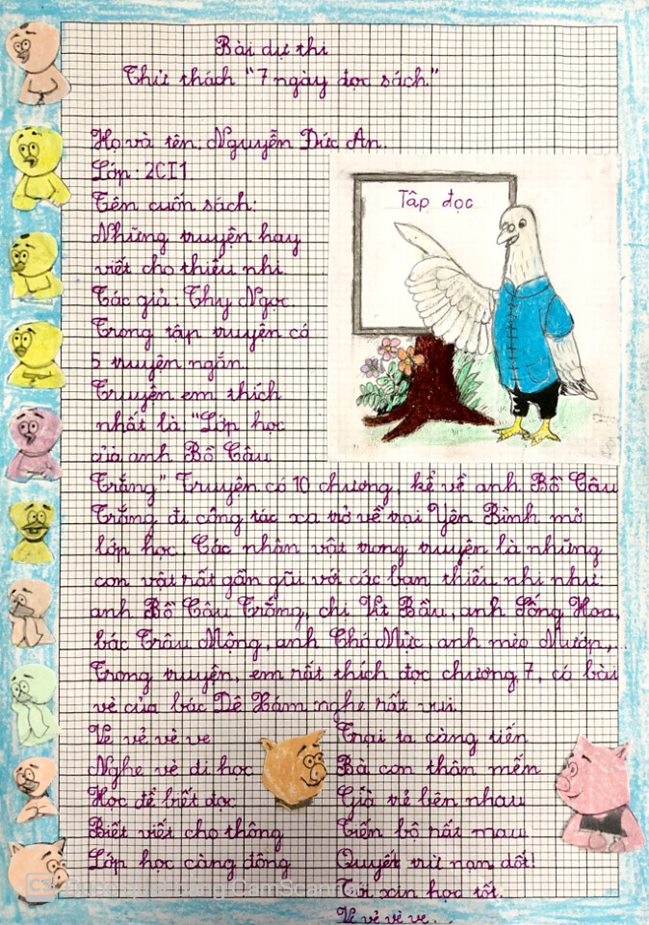 Bài dự thi
Thử thách "7 ngày đọc sách"
Họ và tên: Nguyễn Đức An.
Lớp: 2CI1
Tên cuốn sách:
Những truyện hay
viết cho thiếu nhi
Tác giả: Thy Ngọc.
Trong tập truyện có
5 truyện ngắn.
Truyện em thích
nhất là: "Lớp học
của anh Bồ Câu
Trắng". Truyện có 10 chương, kể về anh Bồ Câu
Trắng đi công tác xa trở về trại Yên Bình mở
lớp học. Các nhân vật trong truyện là những
con vật rất gần gũi với các bạn thiếu nhi như:
anh Bồ Câu Trắng, chị Vịt Bầu, anh Hoa,
bác Trâu Mộng, anh Chó Mực, anh mèo Mướp,...
Trong truyện, em rất thích đọc chương 7, có bài
vè của bác Dê Xám nghe rất vui.
Ve vẻ vè ve
Nghe vè đi học
Học để biết đọc
Biết viết cho thông
Lớp học càng đông
Trại ta càng tiến
Bà con thân mến
Già trẻ bên nhau
Tiến bộ rất mau
Quyết trừ nạn dốt!
Tôi xin học tốt.
Ve vẻ vè ve...
Tập đọc
CS Được quét bằng CamScanner